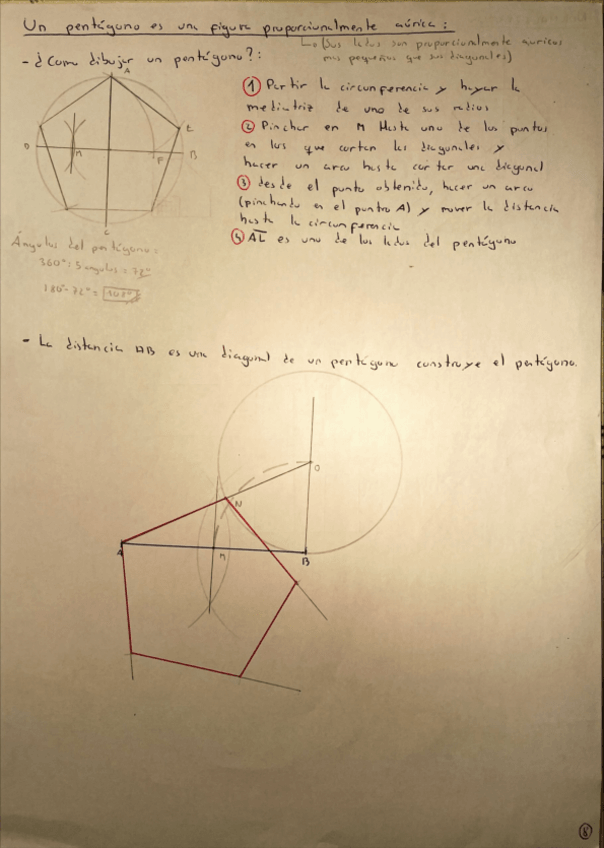 Un pentágono es una figura proporcionalmente aúrica:
(sus lados son proporcionalmente auricos
mas pequeños que sus diagonales)
- ¿Como dibujar un pentágono?:
A
E
D
M
F
B
C
① Partir la circunferencia y hayar la
mediatriz de uno de sus radios
② Pinchar en M Hasta uno de los puntos
en los que cortan las diagonales y
hacer un arco hasta cortar una diagonal
③ desde el punto obtenido, hacer un arco
(pinchando en el punto A) y mover la distancia
hasta la circunferencia
es uno de los lados del pentágono
Ángulos del pentágono:
360º : 5 angulos = 72º
180º - 72º = 108º
- La distancia AB es una diagonal de un pentágono construye el pentágono.
O
N
A
M
B
8